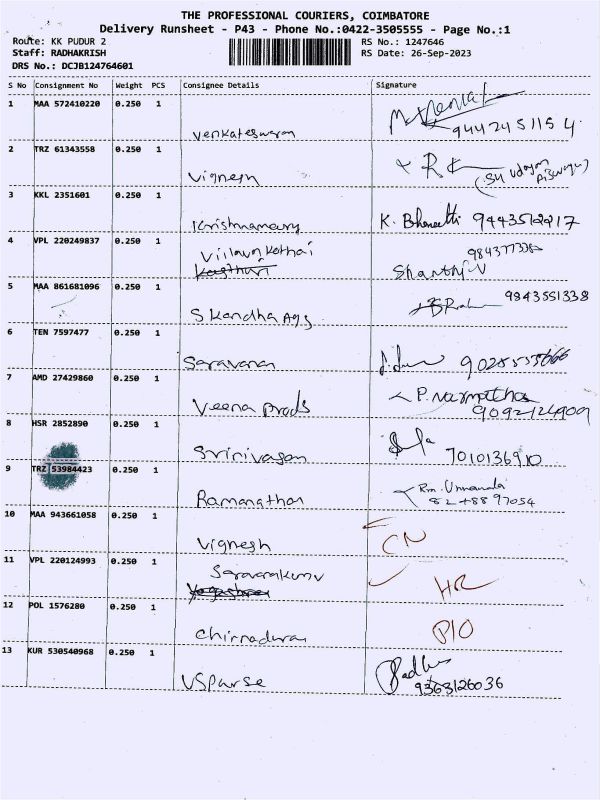 THE PROFESSIONAL COURIERS, COIMBATORE
Delivery Runsheet - P43 - Phone No.:0422-3505555 - Page No.:1
Route: KK PUDUR 2 RS No.: 1247646
Staff: RADHAKRISH RS Date: 26-Sep-2023
DRS No.: DCJB124764601
S No Consignment No Weight PCS Consignee Details Signature
1 MAA 572410220 0.250 1
Venkateswaran 9442451154
2 TRZ 61343558 0.250 1
Vignesh
3 KKL 2351601 0.250 1
K. 9443512217
4 VPL 220249837 0.250 1
Shanthi V
5 MAA 861681096 0.250 1 9843551338
S Kandha Ags
6 TEN 7597477 0.250 1
Saravanan
7 AMD 27429860 0.250 1
Veena Prods
8 HSR 2852890 0.250 1
Srinivasan 7010136910
9 TRZ 53984423 0.250 1
Ramanathan
10 MAA 943661058 0.250 1
Vignesh CN
11 VPL 220124993 0.250 1
HR
12 POL 1576280 0.250 1
Chinnadurai P/O
13 KUR 530540968 0.250 1
VSParse 9363126036